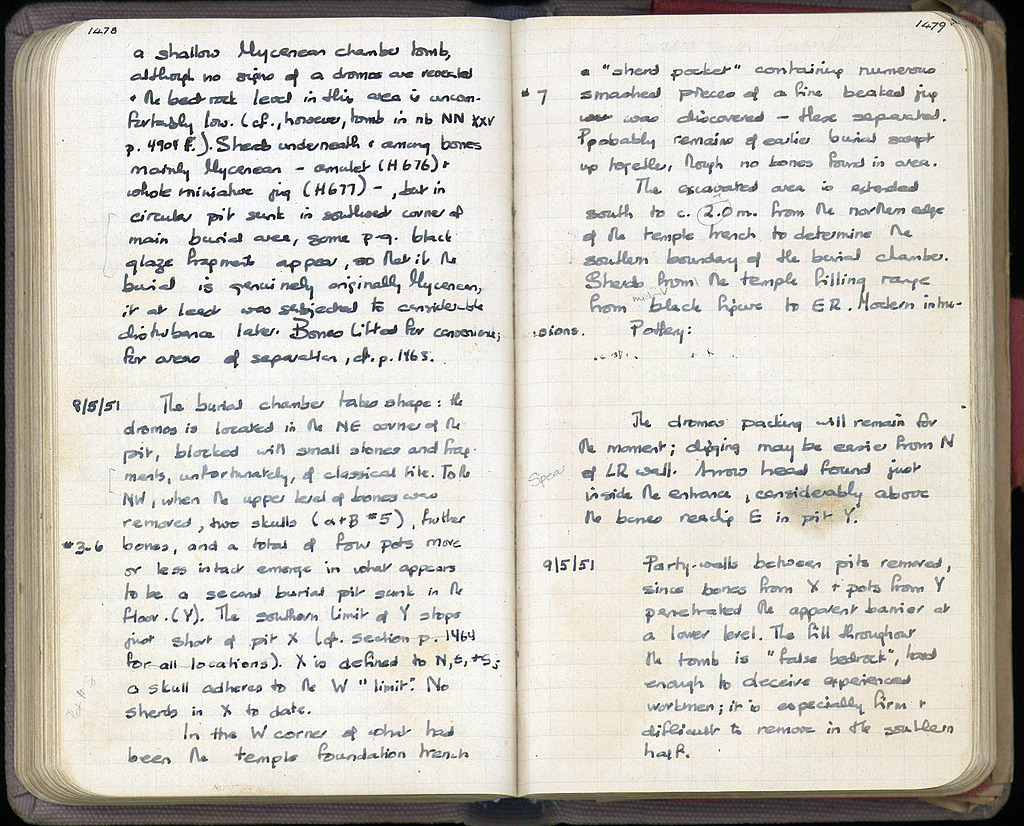 1478
a shallow Mycenean chamber tomb,
although no signs of a dromos are revealed
+ the bedrock level in this area is uncom-
fortably low. (cf., however, tomb in nb NN XXV
p. 4904 ff.). Sherds underneath & among bones
mainly Mycenean – amulet (H676) +
whole miniature jug (H677) –, but in
circular pit sunk in southwest corner of
main burial area, some p.-g. black
glaze fragments appear, so that if the
burial is genuinely originally Mycenean,
it at least was subjected to considerable
disturbance later. Bones lifted for convenience;
for areas of separation, cf. p. 1463.
8/5/51 The burial chamber takes shape: the
dromos is located in the NE corner of the
pit, blocked with small stones and frag-
ments, unfortunately, of classical tile. To the
NW, when the upper level of bones was
removed, two skulls (α+β #5), further
#3-6 bones, and a total of four pots more
or less intact emerge in what appears
to be a second burial pit sunk in the
floor. (Y). The southern limit of Y stops
just short of pit X (cf. section p. 1464
for all locations). X is defined to N, E, + S;
a skull adheres to the W "limit". No
sherds in X to date.
In the W corner of what had
been the temple foundation trench
1479
a "sherd pocket" containing numerous
#7 smashed pieces of a fine beaked jug
was discovered – these separated.
Probably remains of earlier burial swept
up together, though no bones found in area.
The excavated area is extended
south to c. 2.0 m. from the northern edge
of the temple trench to determine the
southern boundary of the burial chamber.
Sherds from the temple filling range
from black figure to ER. Modern intru-
sions. Pottery:
The dromos packing will remain for
the moment; digging may be easier from N
Spear
of LR wall. Arrow head found just
inside the entrance, considerably above
the bones reading E in pit Y.
9/5/51 Party-walls between pits removed,
since bones from X + pots from Y
penetrated the apparent barrier at
a lower level. The fill throughout
the tomb is "false bedrock", hard
enough to deceive experienced
workmen; it is especially firm +
difficult to remove in the southern
half.